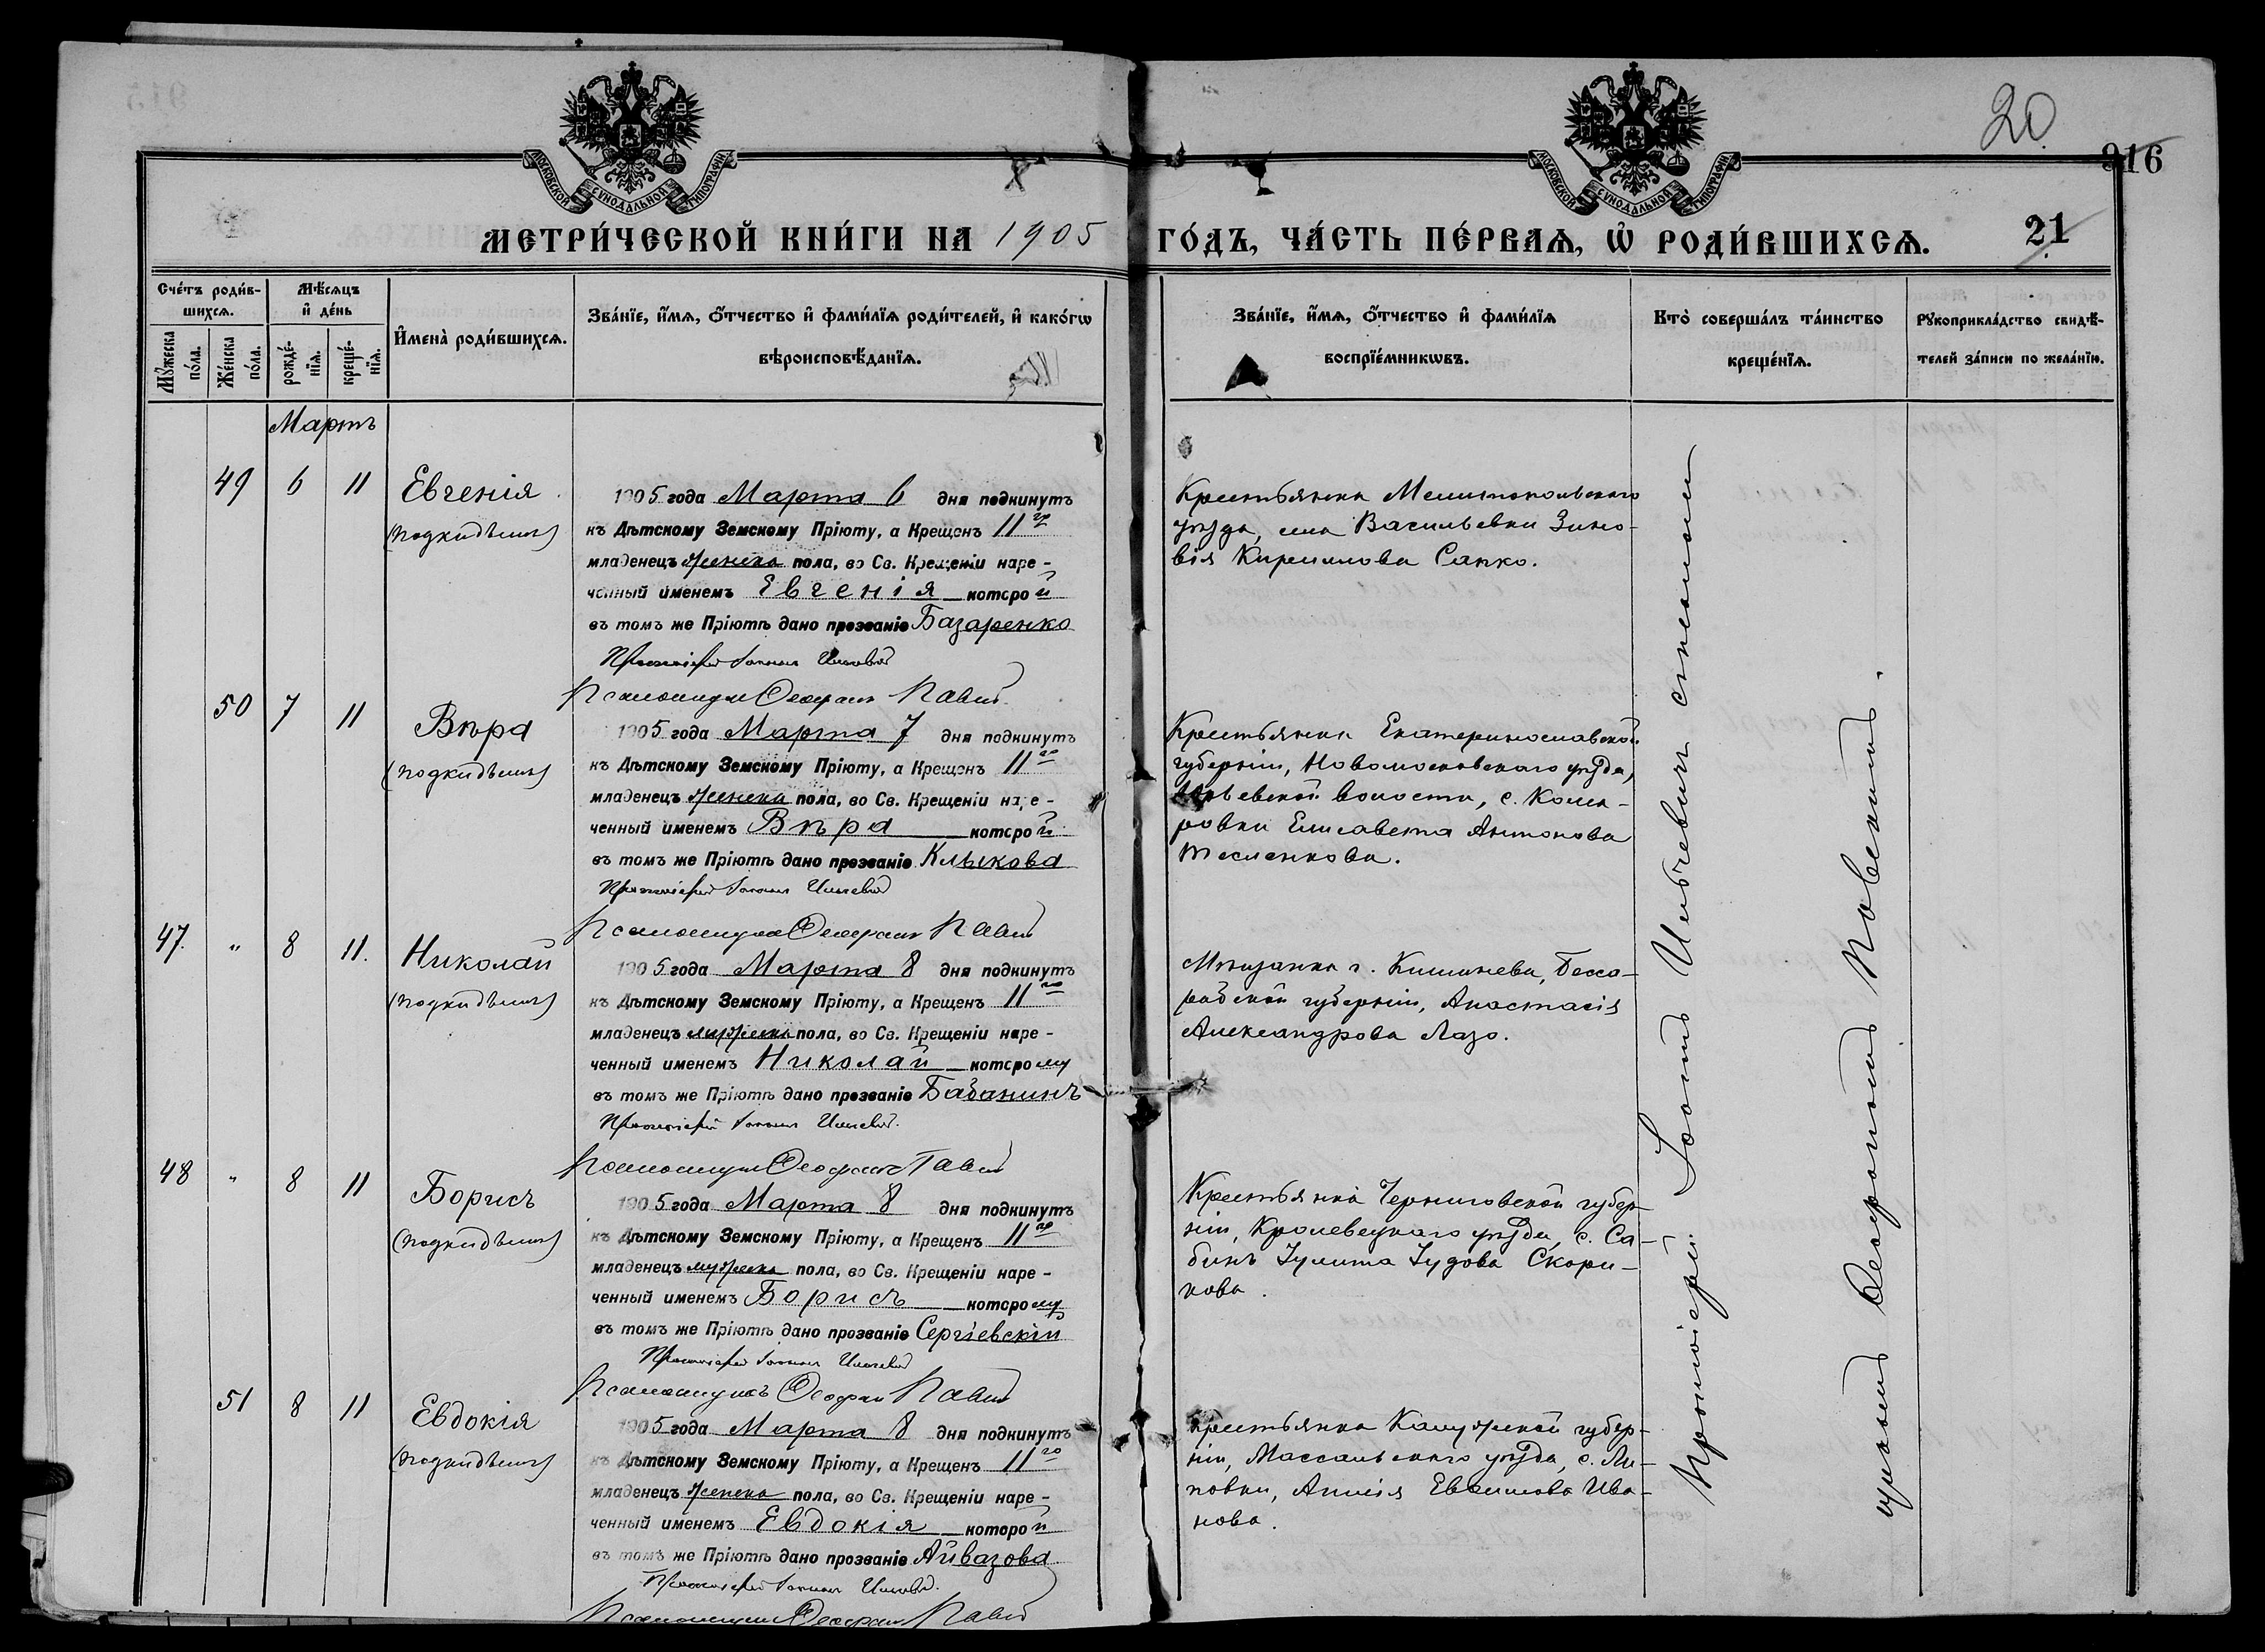 20
916
21
МОСКОВСКОЙ СѴНОДАЛЬНОЙ ТИПОГРАФІИ
МОСКОВСКОЙ СѴНОДАЛЬНОЙ ТИПОГРАФІИ
МЕТРИ́ЧЕСКОЙ КНИ́ГИ НА 1905 ГО́ДЪ, ЧА́СТЬ ПЕ́РВАѦ, Ѡ҆ РОДИ́ВШИХСѦ.
Сче́тъ роди́в-
шихсѧ.
Мꙋ́жеска
по́ла.
Же́нска
по́ла.
Мѣ́сѧцъ
и҆ де́нь
рожде́-
нїѧ.
креще́-
нїѧ.
И҆мена̀ роди́вшихсѧ.
Зва́нїе, и҆́мѧ, ѻ҆́тчество и҆ фами́лїѧ роди́телей, и҆ како́гѡ
вѣроисповѣ́данїѧ.
Зва́нїе, и҆́мѧ, ѻ҆́тчество и҆ фами́лїѧ
воспрїе́мникѡвъ.
Кто̀ соверша́лъ та́инство
креще́нїѧ.
Рꙋкоприкла́дство свидѣ́-
телей за́писи по жела́нїю.
Мартъ
49 6 11 Евгенія
(подкидышъ)
1905 года Марта 6 дня подкинутъ
къ Дѣтскому Земскому Пріюту, а Крещенъ 11го
младенецъ женска пола, во Св. Крещеніи наре-
ченный именемъ Евгенія которой
въ томъ же Пріютѣ дано прозваніе Базаренко
Протоіерей Іоаннъ
Псаломщикъ Феофанъ
Крестьянка Мелитопольскаго
уѣзда, села Васильевки Зино-
вія Кириллова Сапко.
50 7 11 Вѣра
(подкидышъ)
1905 года Марта 7 дня подкинутъ
къ Дѣтскому Земскому Пріюту, а Крещенъ 11го
младенецъ женска пола, во Св. Крещеніи наре-
ченный именемъ Вѣра которой
въ томъ же Пріютѣ дано прозваніе Клыкова
Протоіерей Іоаннъ
Псаломщикъ Феофанъ
Крестьянка Екатеринославской
губерніи, Новомосковскаго уѣзда,
волости, с. Кома-
ровки Елисавета Антонова
Тесленкова.
47. " 8 11. Николай
(подкидышъ)
1905 года Марта 8 дня подкинутъ
къ Дѣтскому Земскому Пріюту, а Крещенъ 11го
младенецъ мужеска пола, во Св. Крещеніи наре-
ченный именемъ Николай которому
въ томъ же Пріютѣ дано прозваніе Бабанинъ
Протоіерей Іоаннъ
Псаломщикъ Феофанъ
Мѣщанка г. Кишинева, Бесса-
рабской губерніи, Анастасія
Александрова Лазо.
48 " 8 11 Борисъ
(подкидышъ)
1905 года Марта 8 дня подкинутъ
къ Дѣтскому Земскому Пріюту, а Крещенъ 11го
младенецъ мужеска пола, во Св. Крещеніи наре-
ченный именемъ Борисъ которому
въ томъ же Пріютѣ дано прозваніе Сергіевскій
Протоіерей Іоаннъ
Псаломщикъ Феофанъ
Крестьянка Черниговской губер-
ніи, Кролевецкаго уѣзда, с. Са-
бинъ Іулита Іудова Скори-
кова.
51 8 11 Евдокія
(подкидышъ)
1905 года Марта 8 дня подкинутъ
къ Дѣтскому Земскому Пріюту, а Крещенъ 11го
младенецъ женска пола, во Св. Крещеніи наре-
ченный именемъ Евдокія которой
въ томъ же Пріютѣ дано прозваніе Айвазова
Протоіерей Іоаннъ
Псаломщикъ Феофанъ
Крестьянка Калужской губер-
ніи, Массальскаго уѣзда, с. Ли-
повки, Аннія Евфимова Ива-
нова.
Протоіерей Іоаннъ Ильчевичъ съ псалом-
щикомъ Феофаномъ